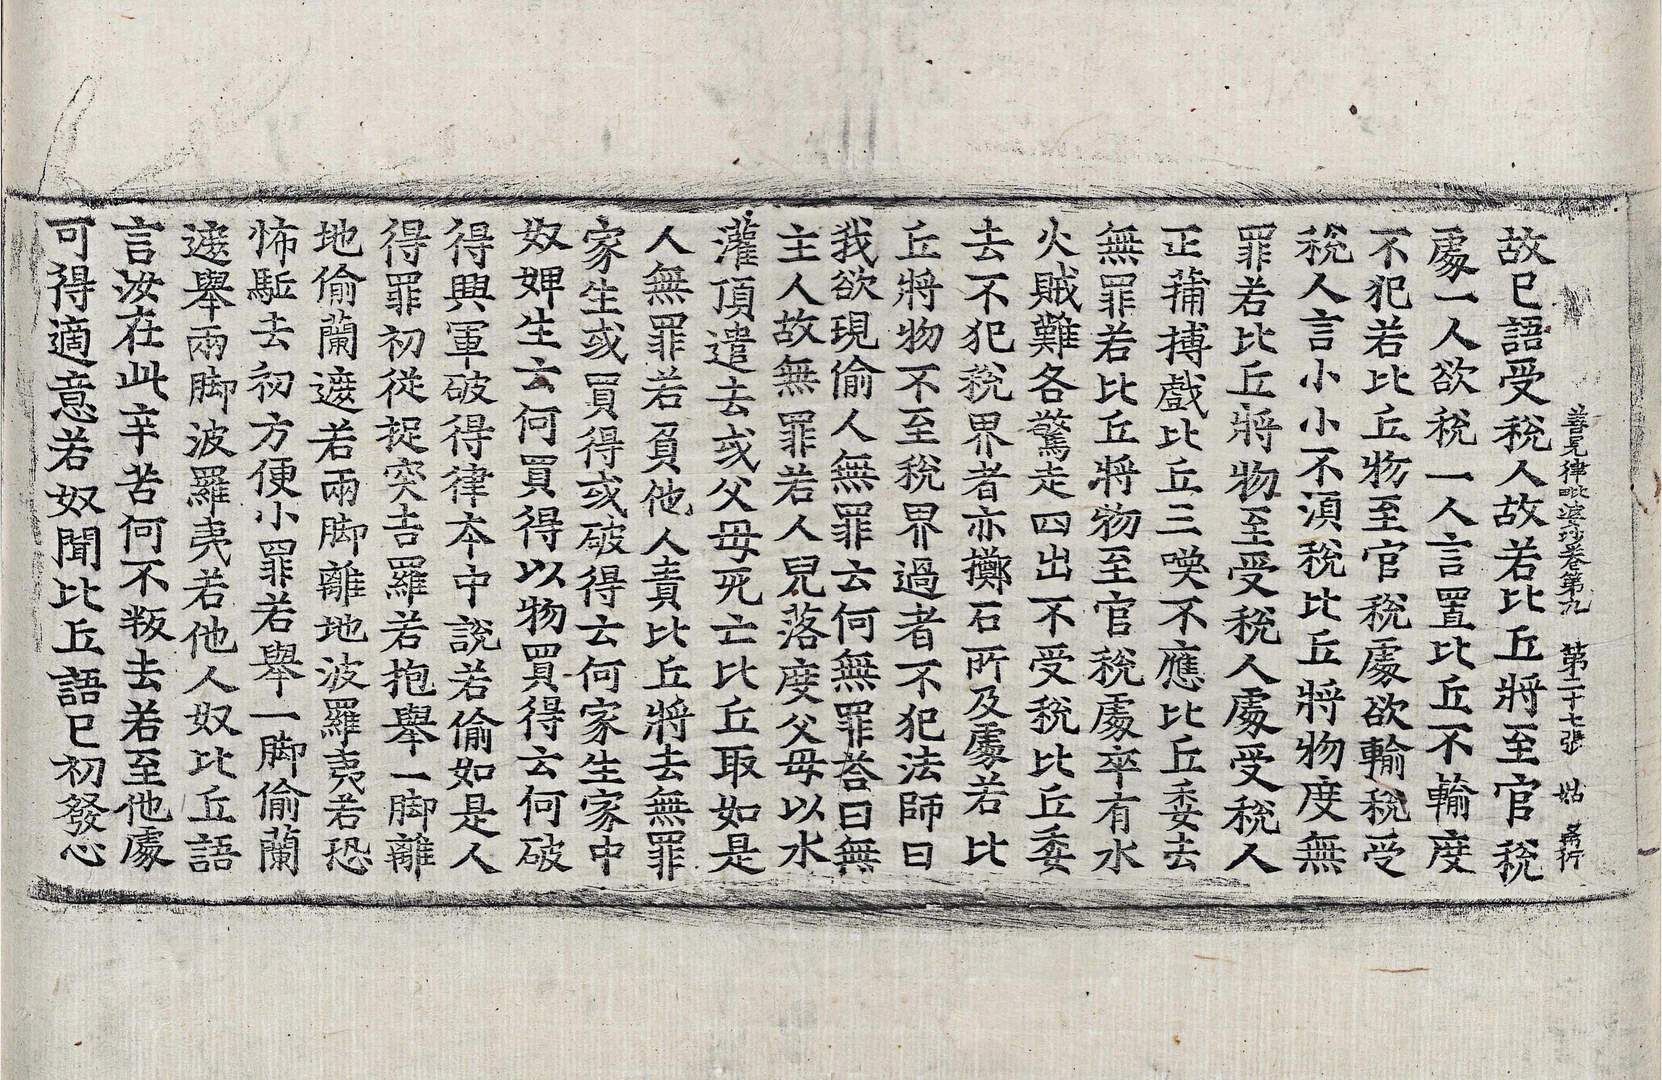 善見律毗波沙卷第九　第二十七張　姑
故已語受稅人故若比丘將至官稅
處一人欲稅一人言置比丘不輸度
不犯若比丘物至官稅處欲輸稅受
稅人言小小不湏稅比丘將物度無
罪若比丘將物至受稅人處受稅人
正蒱摶戲比丘三喚不應比丘委去
無罪若比丘將物至官稅處卒有水
火賊難各驚走四出不受稅比丘委
去不犯稅界者亦擲石所及處若比
丘將物不至稅界過者不犯法師曰
我欲現偷人無罪云何無罪荅曰無
主人故無罪若人兒落度父母以水
灌頂遣去或父母死亡比丘取如是
人無罪若負他人責比丘將去無罪
家生或買得或破得云何家生家中
奴婢生云何買得以物買得云何破
得興軍破得律本中說若偷如是人
得罪初從捉突吉羅若抱舉一脚離
地偷蘭遮若兩脚離地波羅夷若恐
怖駈去初方便小罪若舉一脚偷蘭
遮舉兩脚波羅夷若他人奴比丘語
言汝在此辛苦何不叛去若至他處
可得適意若奴聞比丘語已初發心